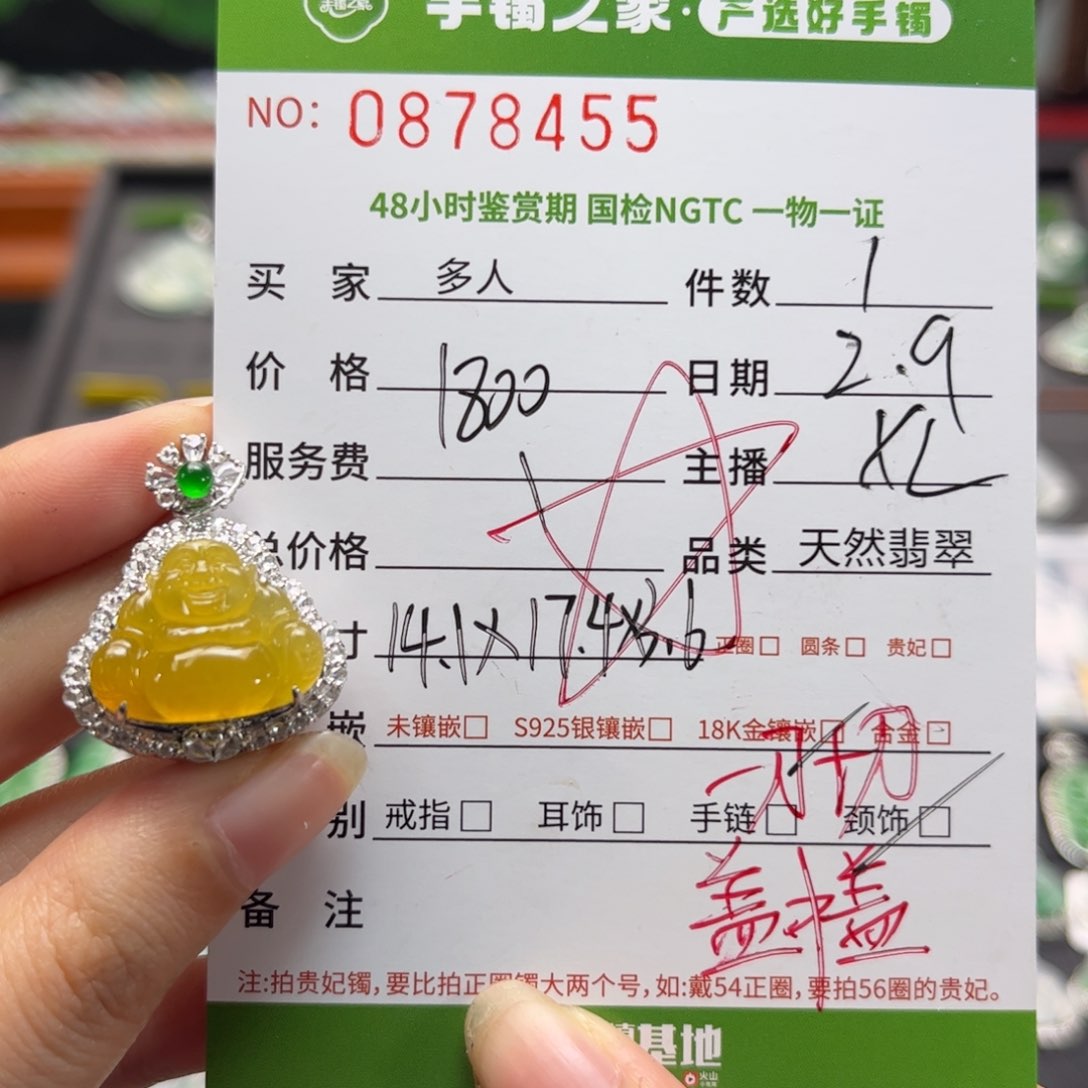 手镯之家
手镯之家·严选好手镯
NO: 0878455
48小时鉴赏期 国检NGTC 一物一证
买 家 多人 件数 1
价 格 1800 日期 2.9
服务费 主播 XL
总价格 品类 天然翡翠
寸 14.1X17.4X3.6 正圈□ 圆条□ 贵妃□
嵌 未镶嵌□ S925银镶嵌□ 18K金镶嵌□ 合金□
一刀切
别 戒指□ 耳饰□ 手链□ 颈饰□
盖中盖
备 注
注:拍贵妃镯,要比拍正圈镯大两个号,如:戴54正圈,要拍56圈的贵妃。
镶基地
火山